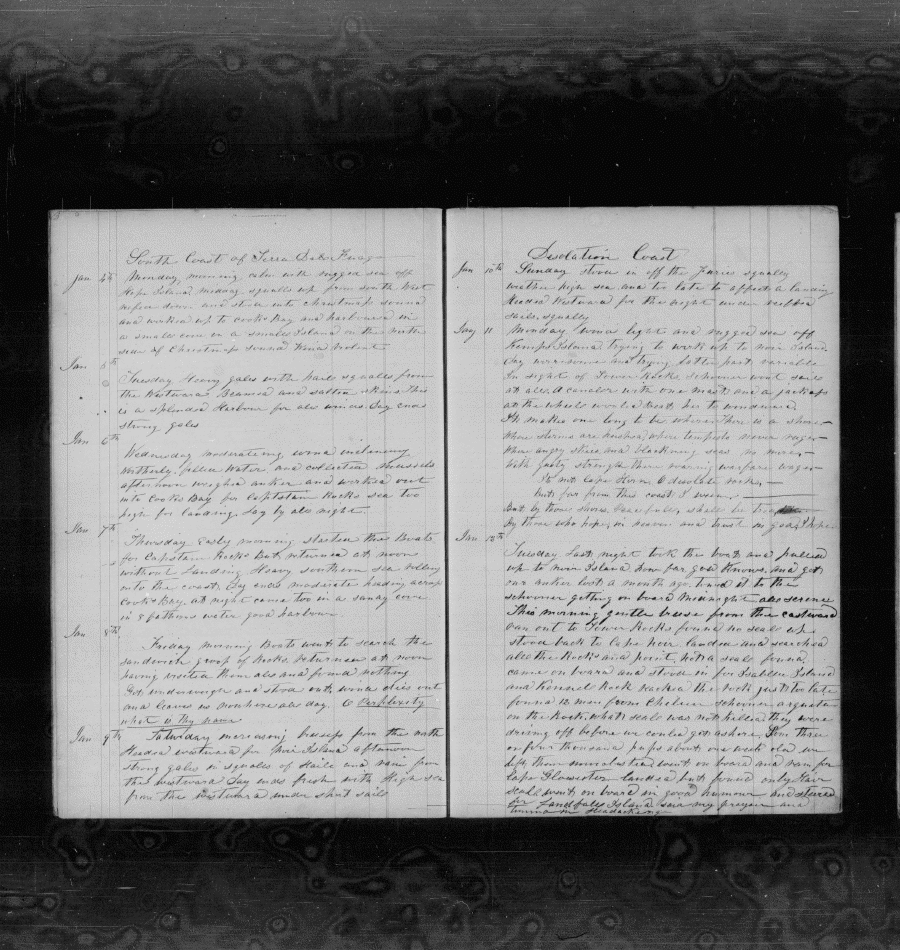 South Coast of Terra Dele Fuego
Jan 4th Monday morning calm with rugged sea off
Hope Island, midday squalls up from south West
wore down and stood into christmas sound
and worked up to Cooks Bay and harboured in
a small cove in a small Island on the north
side of Christmas sound Wind violent
Jan 5th
Tuesday Heavy gales with hail squalls from
the Westward Beamed and salted skins This
is a splendid Harbour for all winds Day ends
strong gales
Jan 6th
Wednesday moderating wind inclining
Northerly, filled Water, and collected Mussels
afternoon weighed anker and worked out
into Cooks Bay for Capstan Rocks sea too
high for landing. Lay by all night
Jan 7th
Thursday Early morning started the Boats
for Capstan Rocks But returned at noon
without Landing Heavy southern sea rolling
into the coast, Day ends moderate heading across
Cooks Bay, at night came too in a sandy cove
in 8 fathoms water good harbour
Jan 8th
Friday morning Boats went to search the
sandwich group of Rocks. Returned at noon
having visited them all and found nothing
Got underweigh and stood out, wind dies out
and leaves us nowhere all day. O Perplexity
what is thy name
Jan 9th Saturday increasing breeses from the north
Headed westward for Noir Island afternoon
strong gales in squalls of Haile and rain from
the westward Day ends fresh with High sea
from the Westward under short sail
Desolation Coast
Jan 10th Sunday stood in off the Furies squally
weather high sea and too late to affect a landing
Headed Westward for the night under reefed
sails, squally
Jany 11 Monday wind light and rugged sea off
Kemps Island, trying to work up to noir Island
Day worrisome and trying latter part variable
In sight of Tower Rocks, schooner wont sail
at all. A caveler with one mast and a jackass
at the wheele would beat her to windward
It makes one long to be where there is a shore
Where storms are hushed, where tempests never rage
Where angry skies and blackning seas no more,
With gusty strength there roaring warfare wage
Its not Cape Horn, O desolate rock,
but far from this coast I ween,
But by those shores, peacefull, shall be trod
By those who hope, in heaven and trust in god, I hope
Jan 12th
Tuesday Last night took the boat and pulled
up to noir Island how far god knows, and got
our anker lost a month ago, towed it to the
schooner getting on board Midnight all serene
This morning gentle breese from the eastward
Ran out to Tower Rocks found no seals up
stood back to Cape noir landed and searched
all the Rocks and point, not a seal found,
came on board and stood in for Isabella Island
and Kennel Rock reached the rock just too late
found 12 men from Chelsea schooner
on the Rock, what seals was not killed they were
driving off before we could get ashore, Some three
or four thousand pups about one week old we
left them went on board and ran for
Cape Gloucester landed but found only five
seals went on board in good humour and steered
for Landfall Island said my prayers and
turned in Headacheing